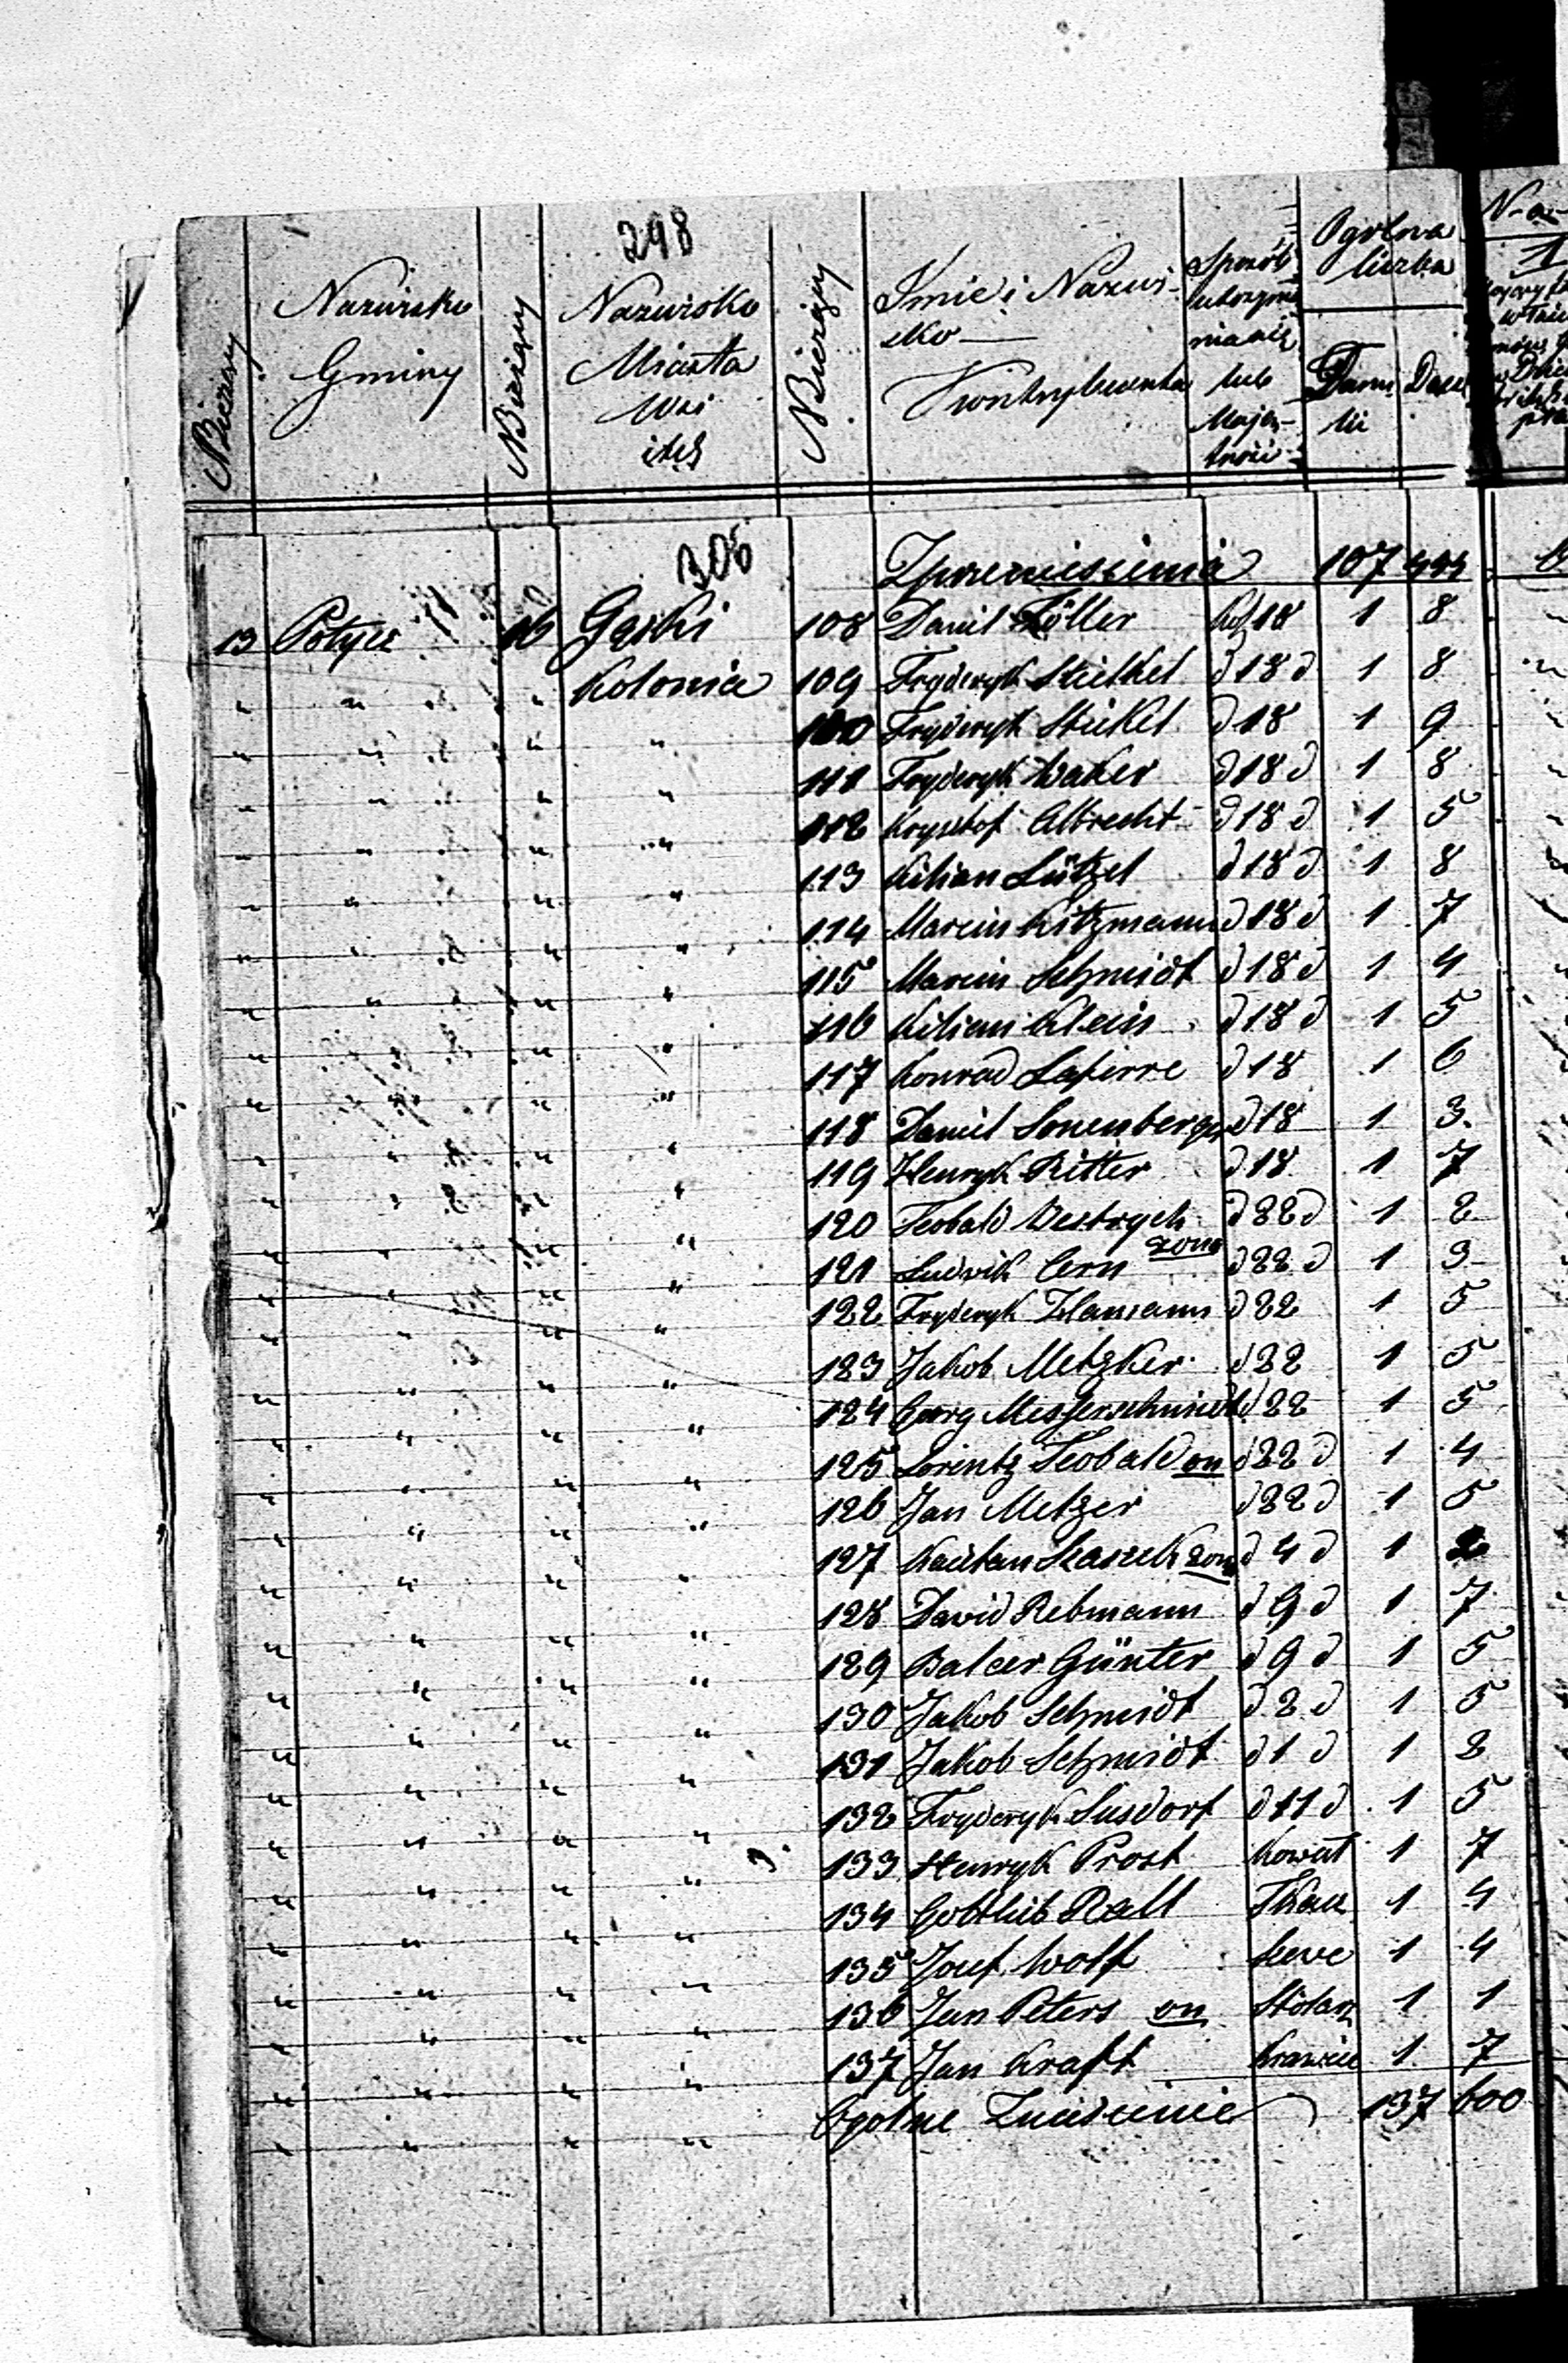 298
Bieżący
Nazwisko Gminy
Bieżący
Nazwisko Miasta Wsi itd
Bieżący
Imie i Nazwisko Kontrybuenta
Sposób utrzymania się lub Majętności
Ogólowa liczba
Famili Dusz
306
Zprzeniesienia 107 444
13 Potycz 16 Gąski 108 Daniel Zöller Rol 18 1 8
" " " Kolonia 109 Fryderyk Stielkel d 18 d 1 8
" " " " 110 Fryderyk Stickel d 18 1 9
" " " " 111 Fryderyk Waker d 18 d 1 8
" " " " 112 Krysztof Albrecht d 18 d 1 5
" " " " 113 Kilian Lützel d 18 d 1 8
" " " " 114 Marcin Kitzmann d 18 d 1 7
" " " " 115 Marcin Schmidt d 18 d 1 4
" " " " 116 Kilian Klein d 18 d 1 5
" " " " 117 Konrad Lapirre d 18 1 6
" " " " 118 Daniel Sonenberger d 18 1 3
" " " " 119 Henryk Ritter d 18 1 7
" " " " 120 Teobald Westrych d 22 d 1 2
" " " " 121 Ludwik Cern zona d 22 d 1 3
" " " " 122 Fryderyk Hamann d 22 1 5
" " " " 123 Jakob Metzker d 22 1 5
" " " " 124 Georg Messerschmidt d 22 1 5
" " " " 125 Lorintz Teobald on d 22 d 1 4
" " " " 126 Jan Metzer d 22 d 1 5
" " " " 127 Kaietan Staszek zona d 4 d 1 2
" " " " 128 David Rebmann d 9 d 1 7
" " " " 129 Balcer Günter d 9 d 1 5
" " " " 130 Jakob Schmidt d 2 d 1 5
" " " " 131 Jakob Schmidt d 1 d 1 2
" " " " 132 Fryderyk Susdorf d 11 d 1 5
" " " " 133 Henryk Prost Kowal 1 7
" " " " 134 Gottlieb Rall Tkacz 1 4
" " " " 135 Josef Wolf 1 4
" " " " 136 Jan Peters on Stolarz 1 1
" " " " 137 Jan Kraft Krawiec 1 7
" " " " Ogolne 137 600